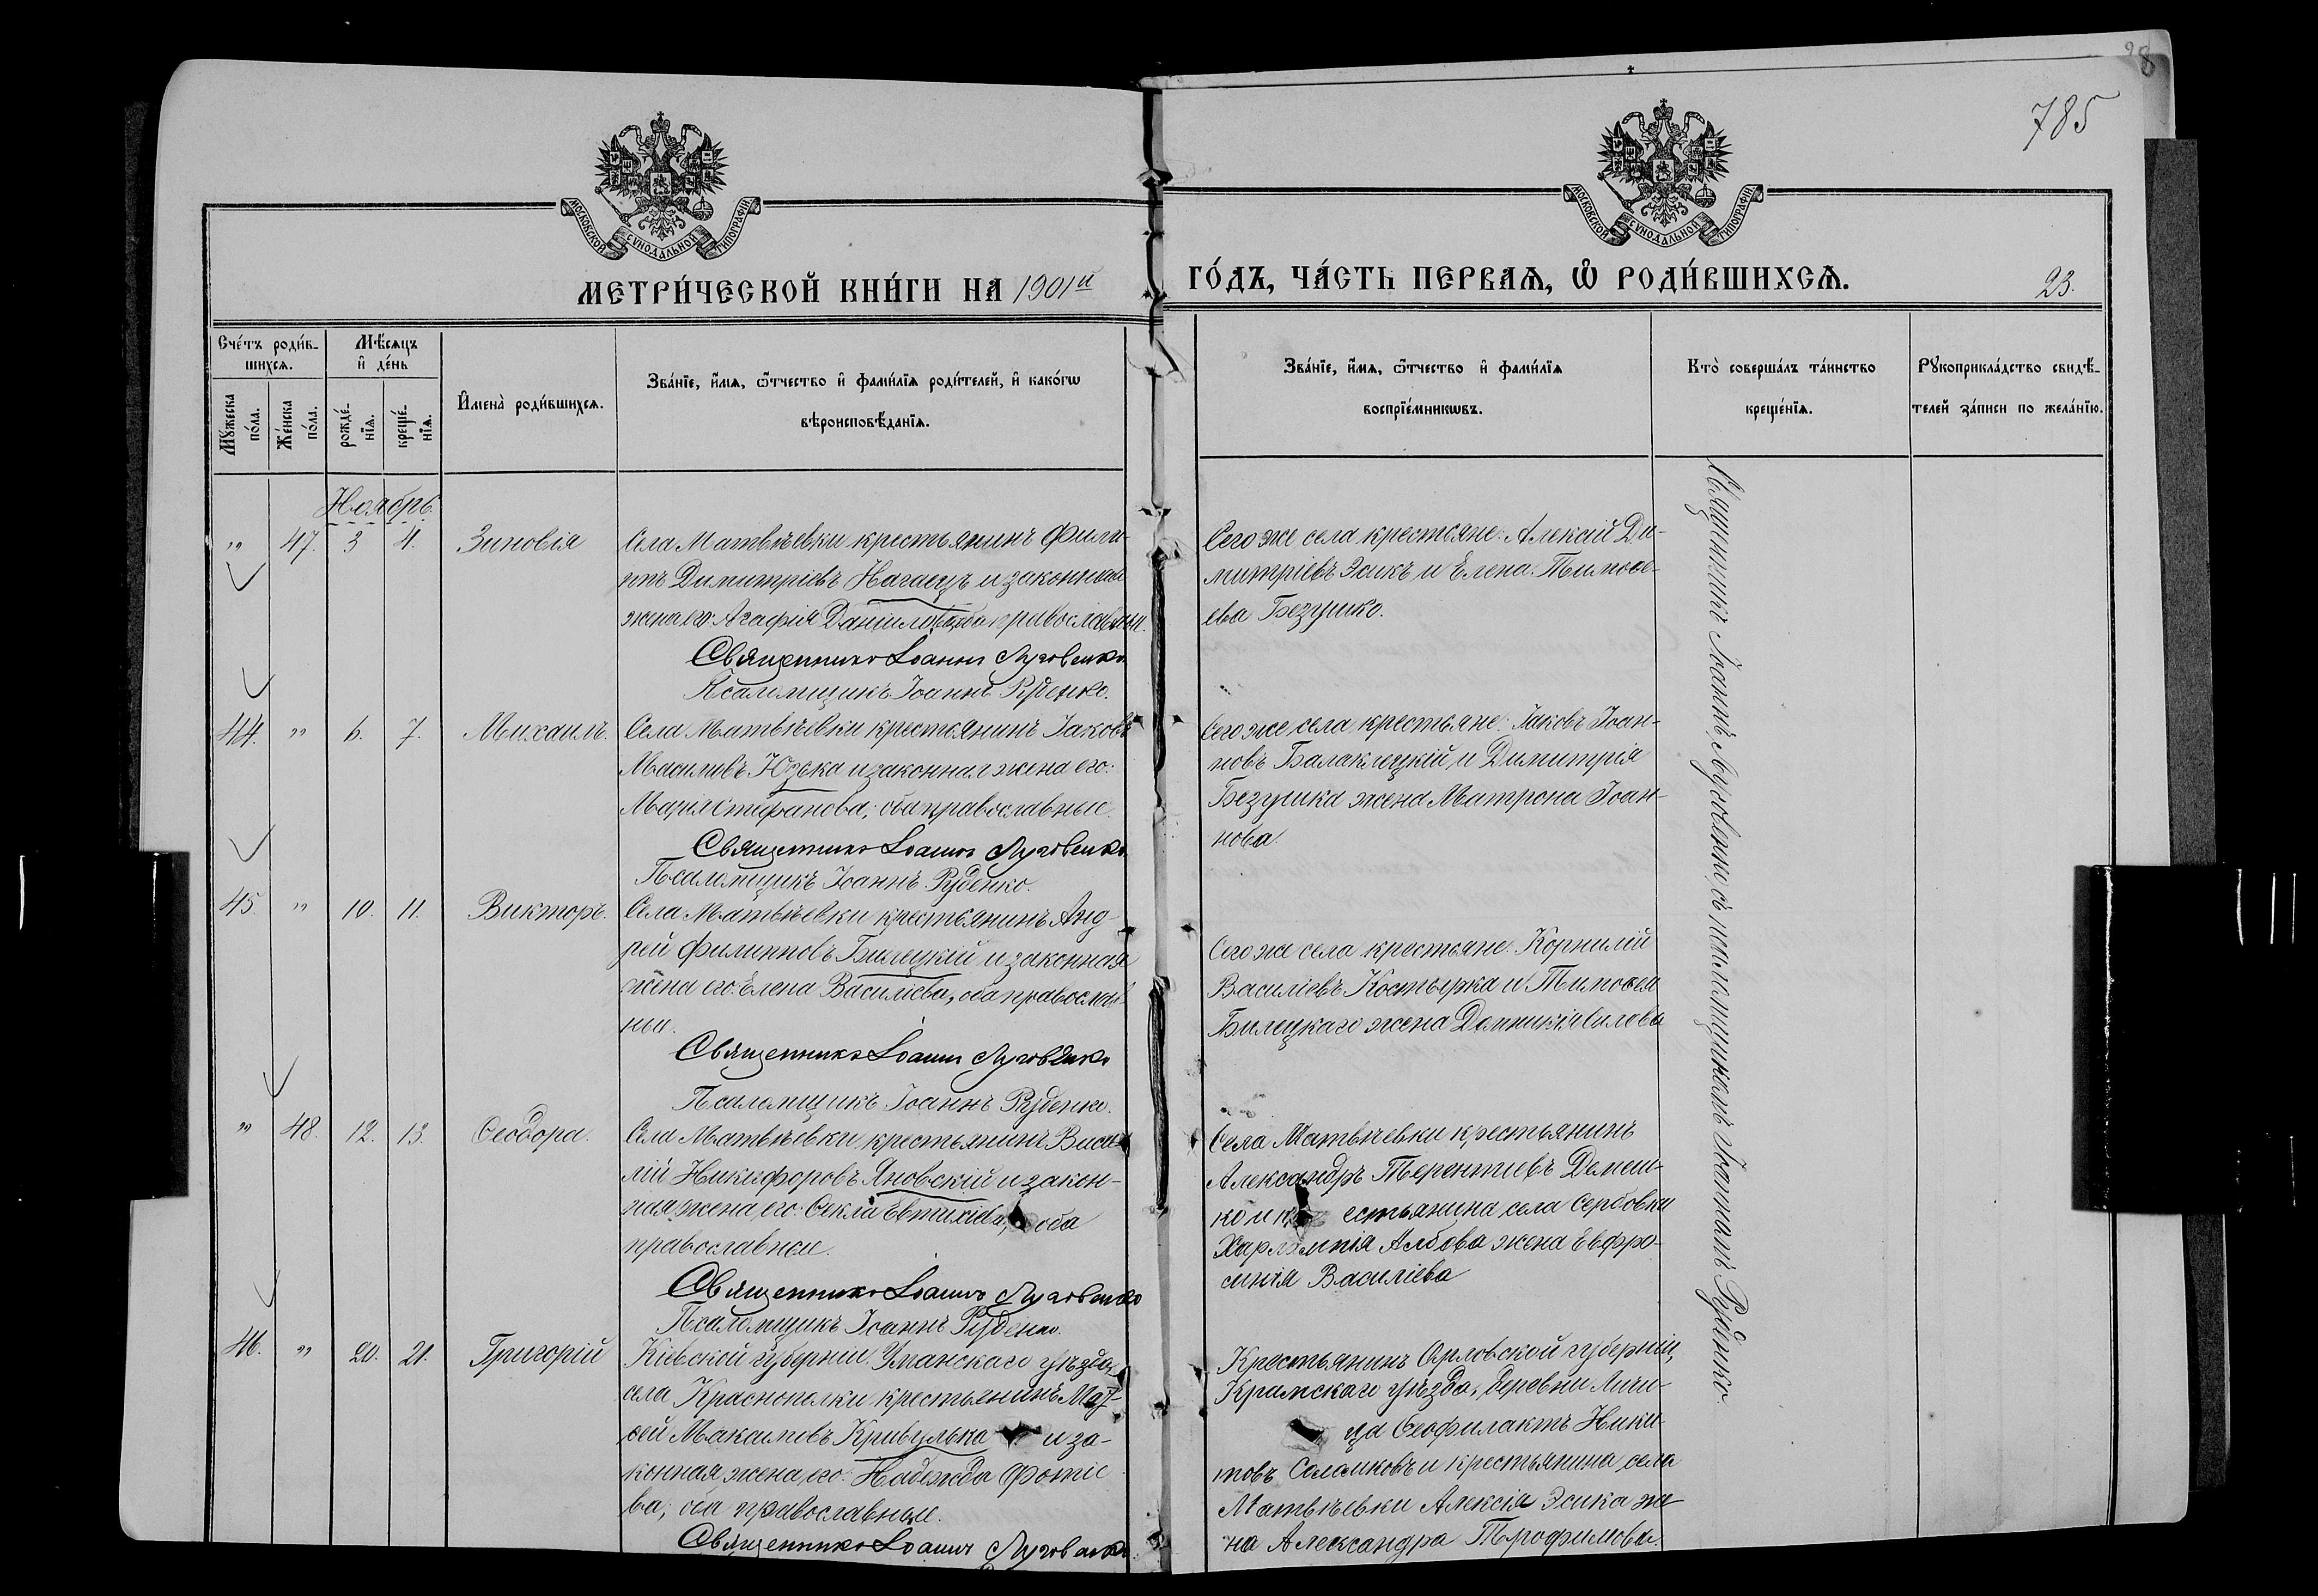 28
785
МОСКОВСКОЙ СѴНОДАЛЬНОЙ ТИПОГРАФІИ
МОСКОВСКОЙ СѴНОДАЛЬНОЙ ТИПОГРАФІИ
МЕТРИ́ЧЕСКОЙ КНИ́ГИ НА 1901й
ГО́ДЪ, ЧА́СТЬ ПЕРВАѦ, Ѽ РОДИ́ВШИХСѦ.
23.
Сче́тъ роди́в-
шихсѧ.
Мꙋ́жеска
по́ла.
Же́нска
по́ла.
Мѣ́сѧцъ
и҆ де́нь
рожде́-
нїѧ.
креще́-
нїѧ.
И҆мена̀ роди́вшихсѧ.
Зва́нїе, и҆́мѧ, ѿтчество и҆ фами́лїѧ роди́телей, и҆ како́гѡ
вѣроисповѣ́данїѧ.
Зва́нїе, и҆́мѧ, ѿтчество и҆ фами́лїѧ
воспрїе́мникѡвъ.
Кто̀ соверша́лъ та́инство
креще́нїѧ.
Рꙋкоприкла́дство свидѣ́-
телей за́писи по жела́нїю.
Ноябрь
„ 47. 3 4. Зиновія
Села Матвѣевки крестьянинъ Фили-
ппъ Димитріевъ Нагаецъ и законная
жена его: Агафія Даніилова, оба православны.
Священникъ Іоаннъ Луговенко
Псаломщикъ Іоаннъ Руденко.
Сего же села крестьяне: Алексій Ди-
митріевъ Эсикъ и Елена Тимоѳе-
ева Безушко.
44. „ 6. 7. Михаилъ.
Села Матвѣевки крестьянинъ Іаковъ
Максимовъ Юзька и законная жена его:
Марія Стефанова; оба православные.
Священникъ Іоаннъ Луговенко
Псаломщикъ Іоаннъ Руденко.
Сего же села крестьяне: Іаковъ Іоан-
новъ Балаклецкій и Димитрія
Безушка жена Матрона Іоан-
нова.
45. „ 10. 11. Викторъ.
Села Матвѣевки крестьянинъ Анд-
рей Филипповъ Билецкій и законная
жена его: Елена Василіева, оба православ-
ны.
Священникъ Іоаннъ Луговенко
Псаломщикъ Іоаннъ Руденко.
Сего же села крестьяне: Корнилій
Василіевъ Костырка и Тимоѳея
Билецкаго жена Домникія
„ 48. 12. 13. Ѳеодора.
Села Матвѣевки крестьянинъ Васи-
лій Никифоровъ Яновскій и закон-
ная жена его: Ѳекла Евтихіева, оба
православные.
Священникъ Іоаннъ Луговенко
Псаломщикъ Іоаннъ Руденко.
Села Матвѣевки крестьянинъ
Александръ Терентіевъ Демеш-
ко и кр естьянина села Сербовки
Харлампія Албова жена Евфро-
синія Василіева
46. „ 20. 21. Григорій
Кіевской губерніи, Уманскаго уѣзда,
села Краснополки крестьянинъ
Максимовъ Кривулька и за-
конная жена его: Надежда Фотіе
ва, оба православные.
Священникъ Іоаннъ Луговенко
Крестьянинъ Орловской губерніи,
Крамскаго уѣзда, деревни
ца Ѳеофилактъ Ники-
товъ Соломковъ и крестьянина села
Матвѣевки Алексія Эсика же
на Александра Трофимова.
Священникъ Іоаннъ Луговенко, съ псаломщикомъ Іоанномъ Руденко.